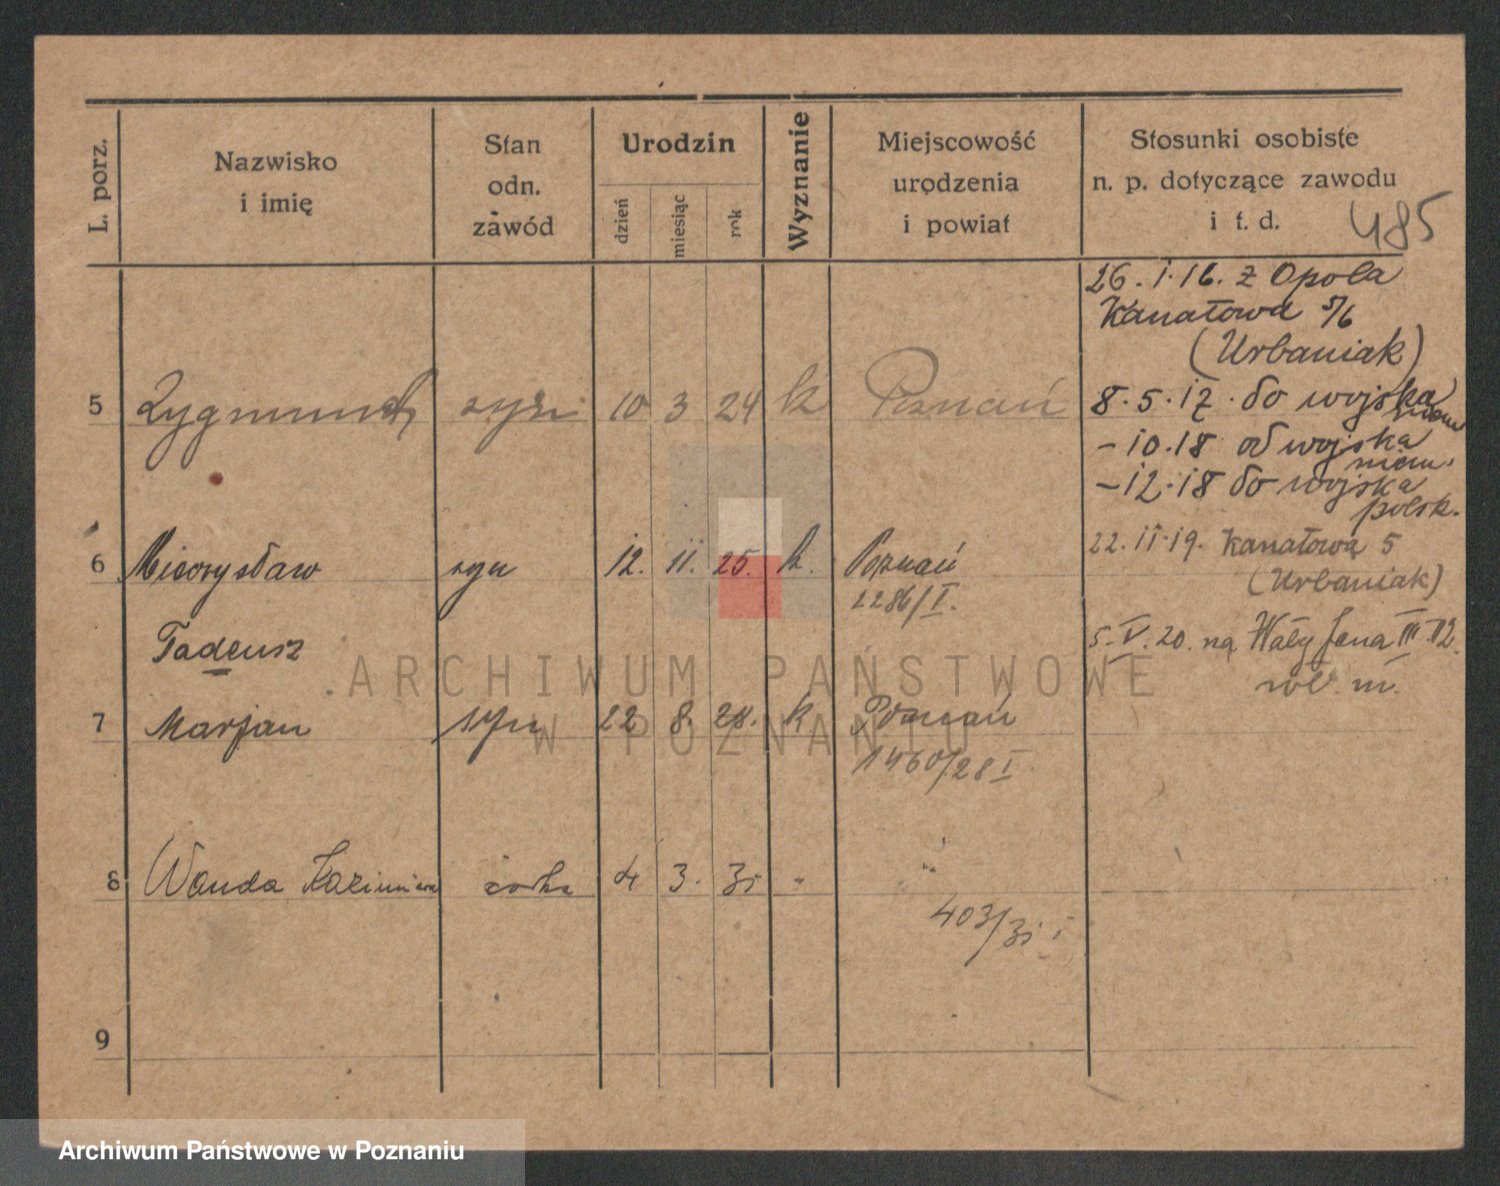 L. porz.
Nazwisko
i imię
Stan
odn.
zawód
Urodzin
dzień
miesiąc
rok
Wyznanie
Miejscowość
urodzenia
i powiat
Stosunki osobiste
n. p. dotyczące zawodu
i t. d.
485
26. I. 16. z Opola
Kanałowa 5/6
(Urbaniak)
8. 5. 17. do wojska
niem
- 10. 18 od wojska
niem.
- 12. 18 do wojska
polsk.
22. II. 19. Kanałowa 5
(Urbaniak)
5. V. 20. na Wały Jana III 12.
5 Zygmunt syn 10 3 24 k Poznań
6 Mieczysław syn 12. 11. 25. k. Poznań
2286/I.
Tadeusz
7 Marjan syn 22 8. 28. k Poznań
1460/28 I
8 Wanda Kazimiera córka 4 3. 31 " "
403/31 I
9
ARCHIWUM PAŃSTWOWE
W POZNANIU
Archiwum Państwowe w Poznaniu